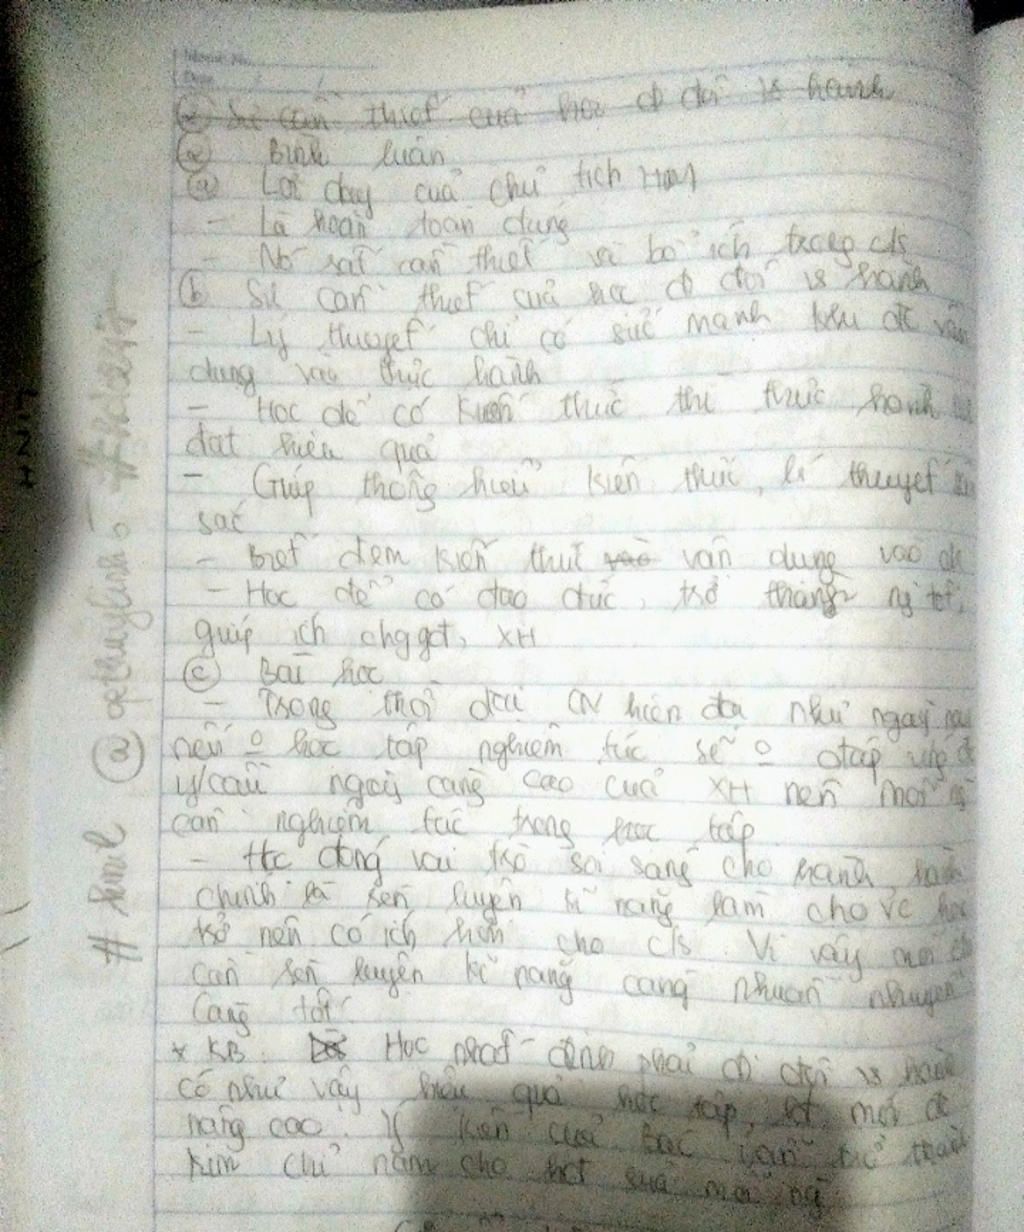 ② Sự cần thiết của học đi đôi vs hành
② Bình luận
ⓐ Lời dạy của chủ tịch HCM
- Là hoàn toàn đúng
- Nó rất cần thiết và bổ ích trong c/s
ⓑ Sự cần thiết của học đi đôi vs hành
- Lý thuyết chỉ có sức mạnh khi đc vận
dụng vào thực hành
- Học để có kiến thức thì thực hành
đạt hiệu quả
- Giúp thông hiểu kiến thức, lí thuyết
sắc
- Biết đem kiến thức vào vận dụng vào
- Học để có đạo đức, trở thành ng tốt,
giúp ích chg gđ, XH
ⓒ Bài học
- Trong thời đại CN hiện đại như ngày nay
nếu 0 học tập nghiêm túc sẽ 0 đáp ứng đc
y/cầu ngày càng cao của XH nên mỗi ng
cần nghiêm túc trong học tập
- Học đóng vai trò soi sáng cho hành, hành
chính là rèn luyện kĩ năng làm cho vc học
trở nên có ích hơn cho c/s. Vì vậy
cần rèn luyện kĩ năng càng nhuần nhuyễn
càng tốt
* KB. Học nhất định phải đi đôi vs hành
có như vậy hiệu quả học tập, mới đc
nâng cao. Ý kiến của Bác vẫn trở thành
kim chỉ nam cho mỗi ng